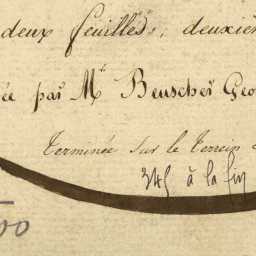 deux feuilles, deuxièm
ée par Mr. Beuscher Geo
Terminée sur le terrein
345 à la fin
00